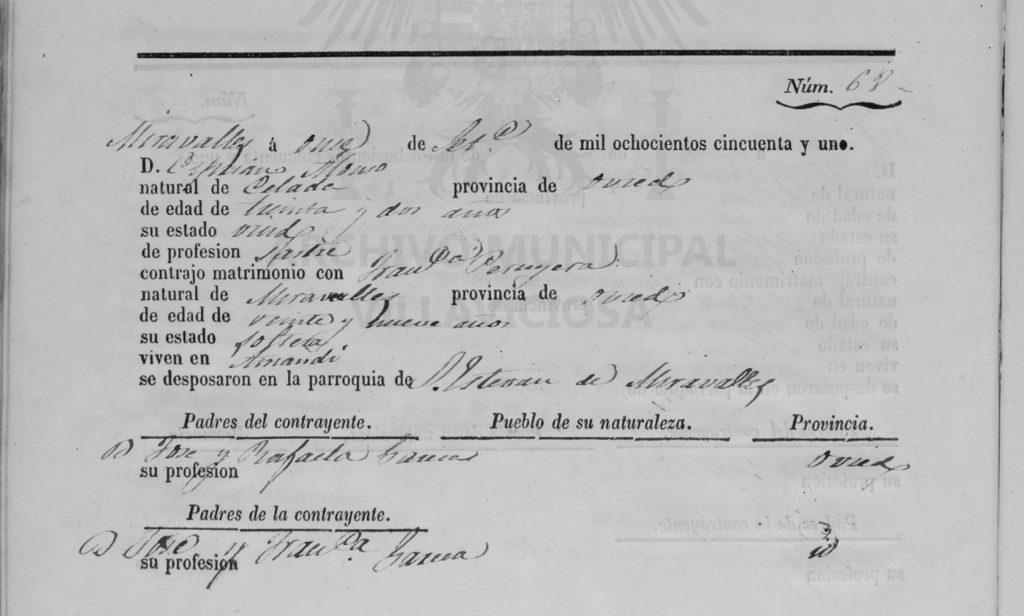 Núm. 68
Miravalles á once de Set.e de mil ochocientos cincuenta y uno.
D. Ciprian Alonso
natural de Celada provincia de Oviedo
de edad de treinta y dos años
su estado
de profesion Sastre
contrajo matrimonio con Fran.ca Peruyera
natural de Miravalles provincia de Oviedo
de edad de veinte y nueve años
su estado soltera
viven en Amandi
se desposaron en la parroquia de S. Estevan de Miravalles
Padres del contrayente. Pueblo de su naturaleza. Provincia.
D Jose y Rafaela Garcia Oviedo
su profesion
Padres de la contrayente.
D Jose y Fran.ca Garcia
su profesion
ARCHIVO MUNICIPAL
VILLAVICIOSA